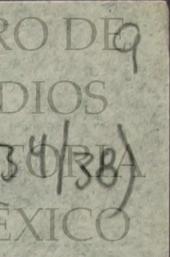 RO DE 9
DIOS
34/38) TORIA
ÉXICO